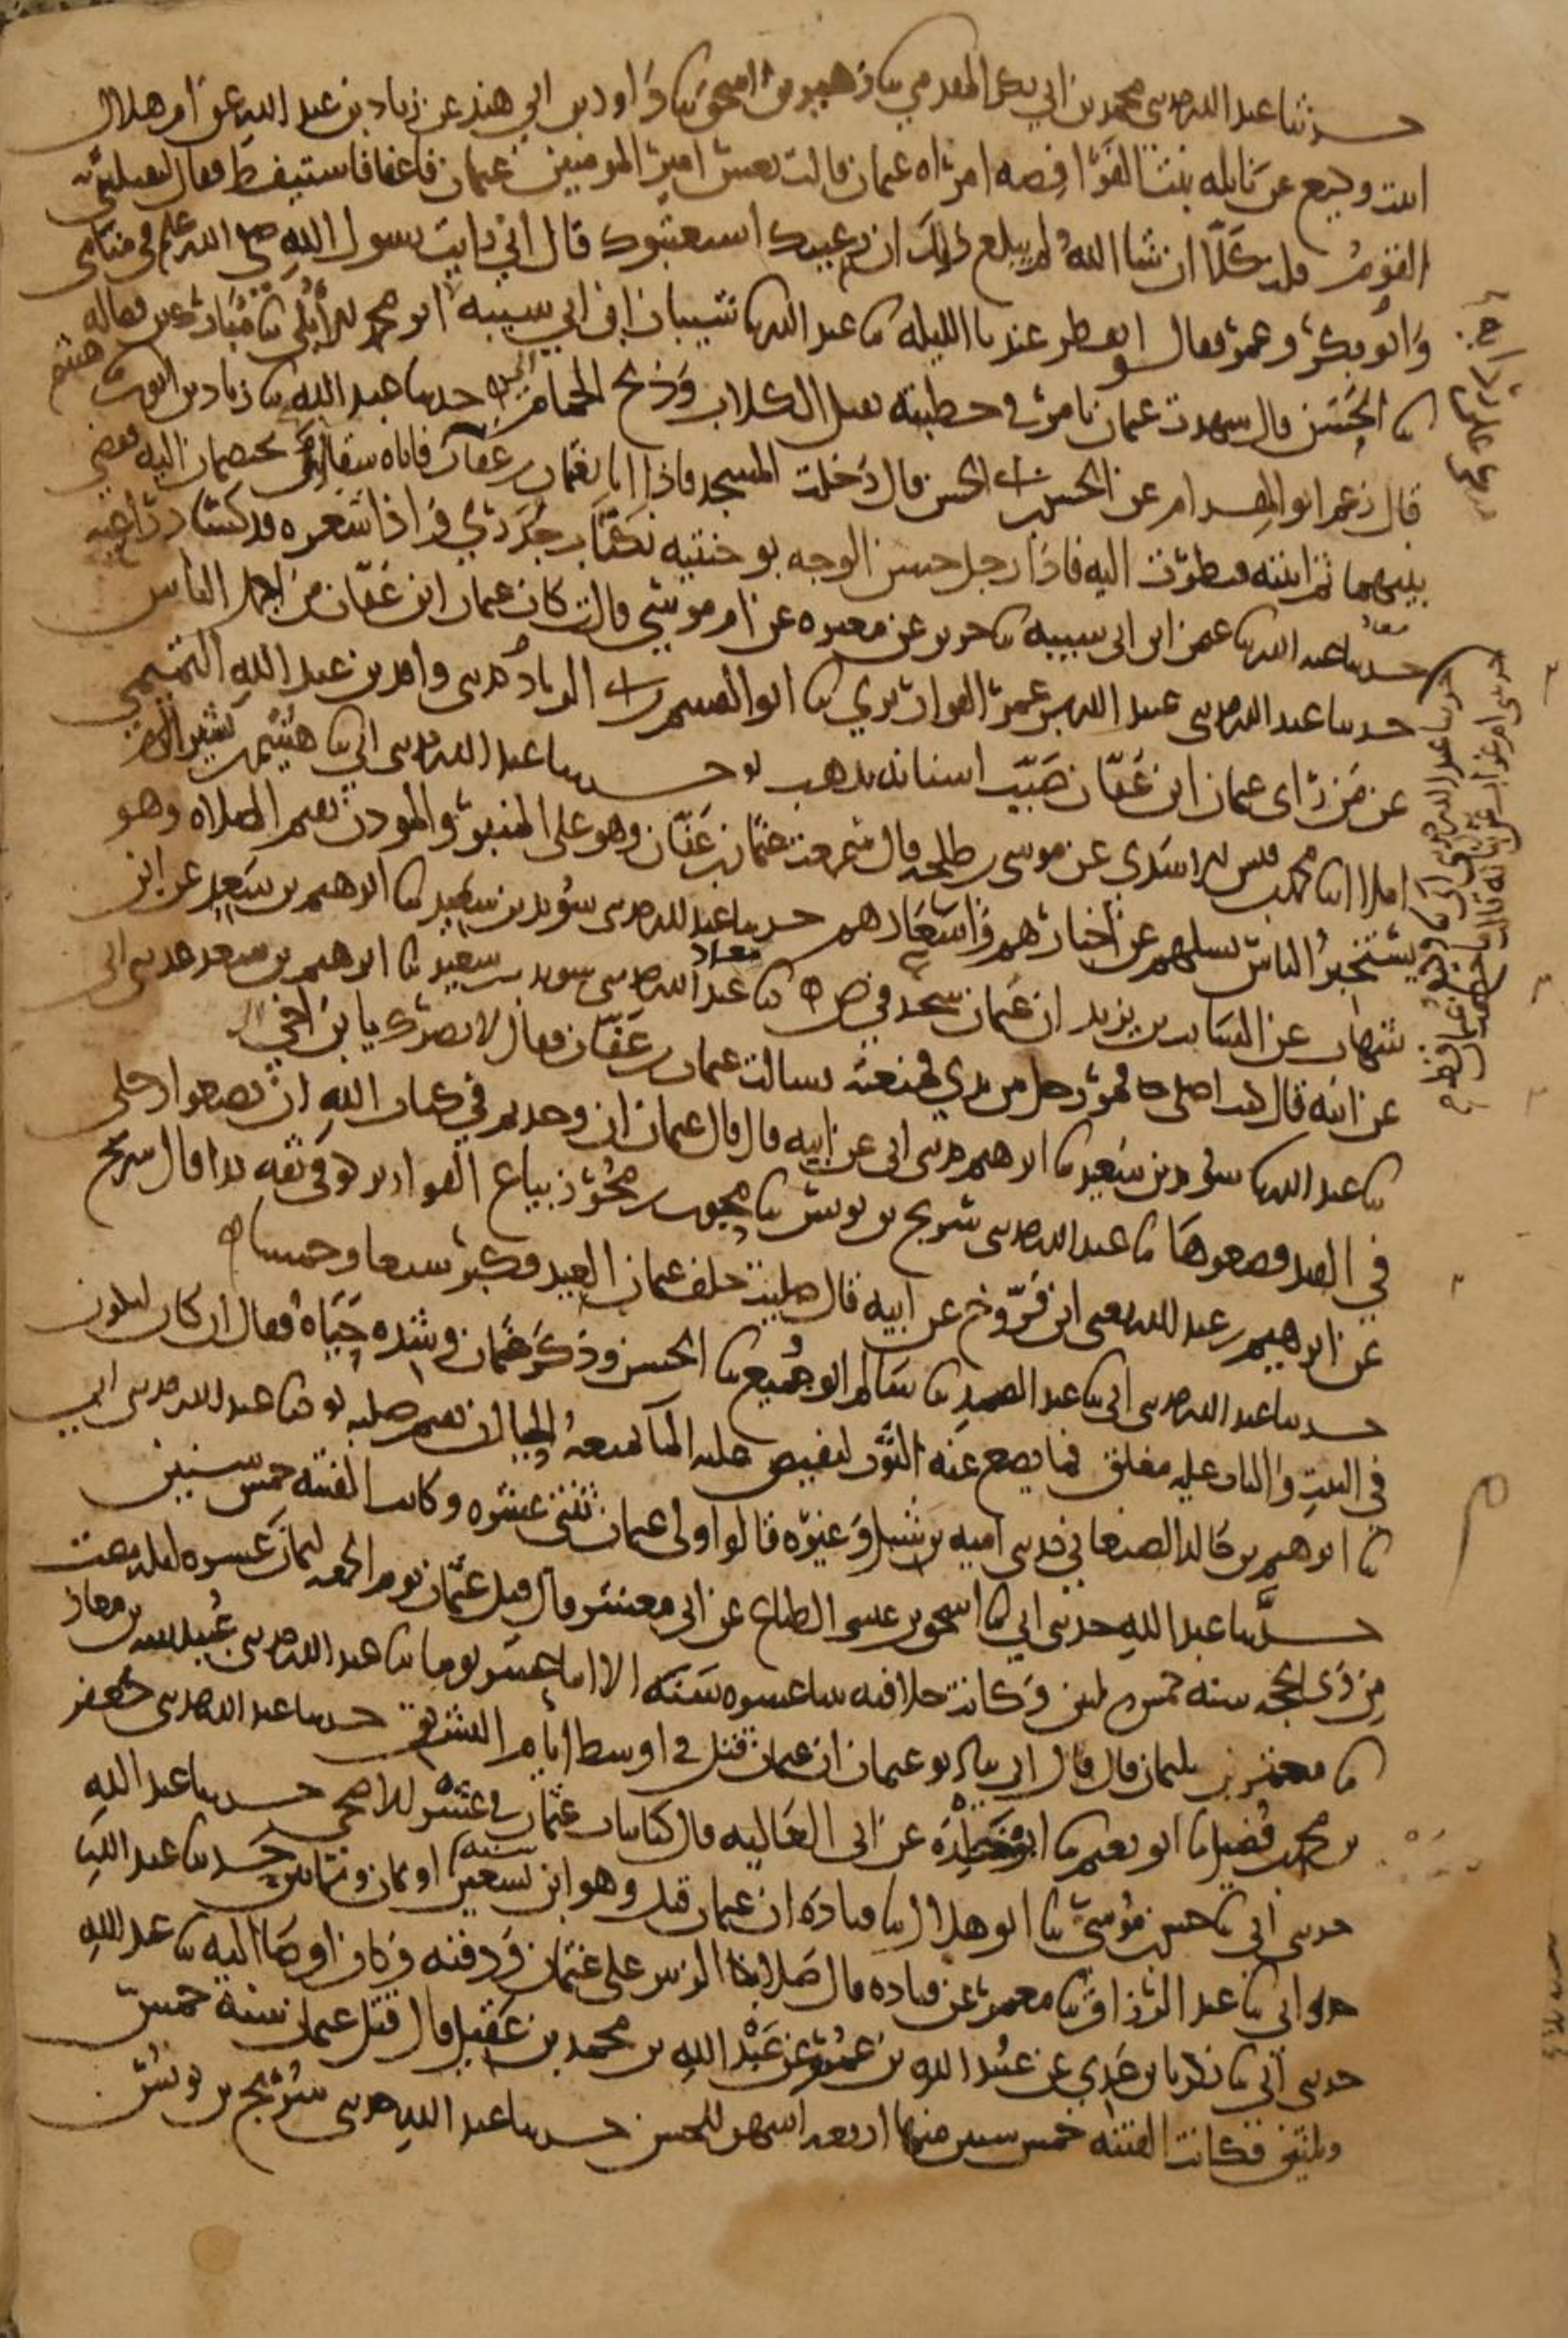 حدثنا عبد الله حدثني محمد بن ابي بكر المقدمي ثنا زهير بن اسحق ثنا داود بن ابي هند عن زياد بن عبد الله عن ام هلال
ابنت وكيع عن نايله بنت الفرافصه امراه عثمان قالت نعس امير المومنين عثمان فاغفا فاستيقظ فقال ليقتلني
القوم قلت كلا ان شا الله لم يبلع ذلك ان رعيتك استعتبوك قال اني رايت رسول الله صلى الله عليه وسلم في منامي
وابو بكر وعمر فقالوا تفطر عندنا الليله ثنا عبد الله ثنا شيبان ابن ابي شيبه ابو محمد الابلي ثنا مبارك بن فضاله
ثنا الحسن قال شهدت عثمان يامر في خطبته بقتل الكلاب وذبح الحمام حدثنا عبد الله ثنا زياد بن ايوب ثنا هشيم
قال زعم ابو المقدام عن الحسن بن ابي الحسن قال دخلت المسجد فاذا انا بعثمان بن عفان فاتاه سقاان يختصمان اليه فقضى
بينهما ثم اتيته فنظرت اليه فاذا رجل حسن الوجه بوجنتيه نكتات جدري واذا شعره قد كسا ذراعيه
حدثنا عبد الله ثنا عثمن ابن ابي شيبه ثنا جرير عن مغيره عن ام موسى قالت كان عثمان ابن عفان من اجمل الناس
حدثنا عبد الله حدثني عبيد الله بن عمر القواريري ثنا ابو القسم بن ابي الزناد حدثني واقد بن عبد الله التميمي
عن من راى عثمان ابن عفان ضبب اسنانه بذهب حدثنا عبد الله حدثني ابي ثنا هشيم بن بشير
املا انا محمد بن قيس الاسدي عن موسى بن طلحه قال سمعت عثمان بن عفان وهو على المنبر والموذن يقيم الصلاه وهو
يستخبر الناس يسلهم عن اخبارهم واسعارهم حدثنا عبد الله حدثني سويد بن سعيد ثنا ابرهيم بن سعد عن ابن
شهاب عن السايب بن يزيد ان عثمان سجد في ص ثنا عبد الله حدثني سويد بن سعيد ثنا ابرهيم بن سعد حدثني ابي
عن ابيه قال كنت اصلي فمر رجل من يدي فمنعته فسالت عثمان بن عفان فقال لا يضرك يا بن اخي
ثنا عبد الله ثنا سويد بن سعيد ثنا ابرهيم حدثني ابي عن ابيه قال قال عثمان ان وجدتم في كتاب الله ان تضعوا رجلي
في القيد فضعوها ثنا عبد الله حدثني شريح بن يونس ثنا محبوب بن محرز بياع القوارير كوفي ثقه كذا قال سريج
عن ابرهيم بن عبد الله يعني ابن فروخ عن ابيه قال صليت خلف عثمان العيد فكبر سبعا وخمسا
حدثنا عبد الله حدثني ابي ثنا عبد الصمد ثنا سالم ابو جميع ثنا الحسن وذكر عثمان وشده حياه فقال ان كان ليكون
في البيت والباب عليه مغلق فما يضع عنه الثوب ليفيض عليه الما يمنعه الحيا ان يقيم صلبه ثنا عبد الله حدثني ابي
ثنا ابرهيم بن خالد الصنعاني حدثني اميه بن شبل وغيره قالوا ولى عثمان ثنتي عشره وكانت الفتنه خمس سنين
حدثنا عبد الله حدثني ابي ثنا اسحق بن عيسى الطباع عن ابي معشر قال قتل عثمان يوم الجمعه لثمان عشره ليله مضت
من ذي الحجه سنه خمس وثلثين وكانت خلافته ثنتا عشره سنه الا اثنا عشر يوما ثنا عبد الله حدثني عبيد الله بن معاذ
ثنا معتمر بن سليمان قال قال ابي ثنا ابو عثمان ان عثمان قتل في اوسط ايام التشريق حدثنا عبد الله حدثني جعفر
بن محمد بن فضيل ثنا ابو نعيم ثنا ابو خلده عن ابي العاليه قال كنا بباب عثمان في عشر الاضحى حدثنا عبد الله
حدثني ابي ثنا حسن بن موسى ثنا ابو هلال ثنا قتاده ان عثمان قتل وهو ابن تسعين سنه او ثمان وثمانين حدثنا عبد الله
حدثني ابي ثنا عبد الرزاق ثنا معمر عن قتاده قال صلى الزبير على عثمان ودفنه وكان اوصا اليه ثنا عبد الله
حدثني ابي ثنا زكريا بن عدي عن عبيد الله بن عمرو عن عبد الله بن محمد بن عقيل قال قتل عثمان سنة خمس
وثلثين فكانت الفتنه خمس سنين منها اربعه اشهر للحسن حدثنا عبد الله حدثني سريج بن يونس